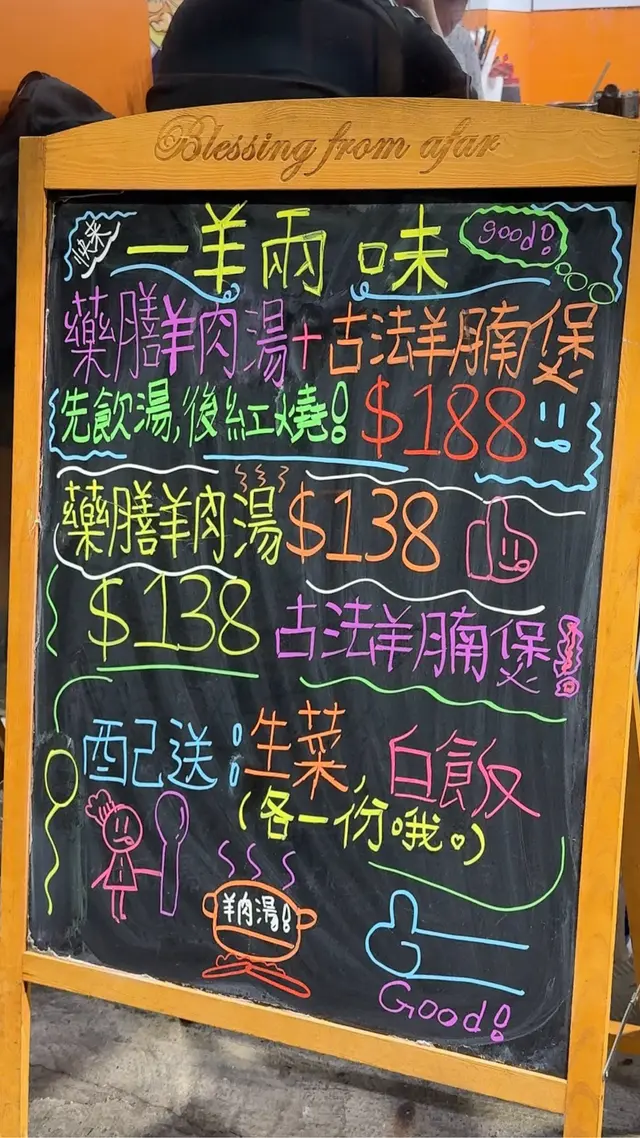 Blessing from afar
快來 一羊兩味 good!
藥膳羊肉湯+古法羊腩煲
先飲湯,後紅燒! $188
藥膳羊肉湯$138
$138 古法羊腩煲!
配送:生菜,白飯
(各一份哦。)
羊肉湯!
Good!